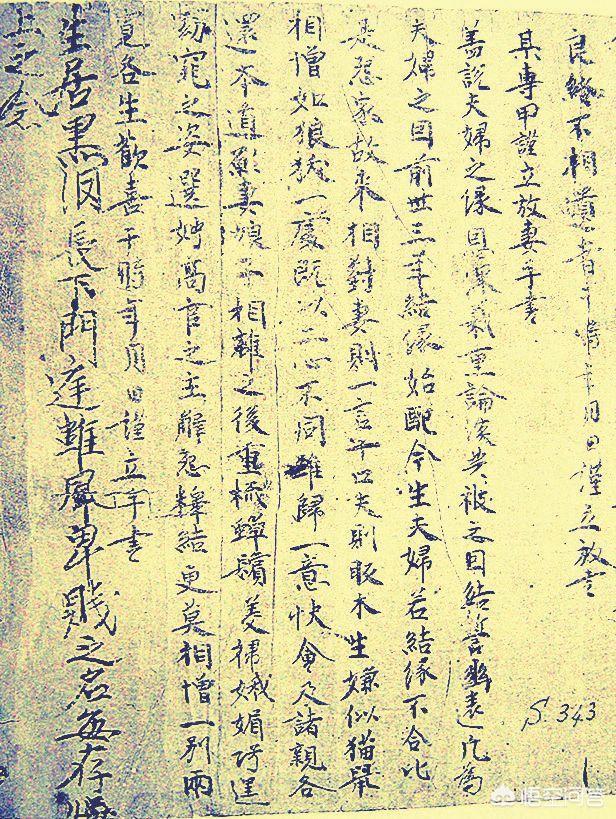 良緣不相書年月日謹立放書
某專甲謹立放妻手書
蓋說夫婦之緣恩深義重論談共被之因結誓幽遠凡為
夫婦之因前世三年結緣始配今生夫婦若結緣不合比
是怨家故來相對妻則一言十口夫則眅木生嫌似猫鼠
相憎如狼犺一處既以二心不同難歸一意快會及諸親各
還本道願妻娘子相離之後重梳蟬鬢美掃娥媚巧逞
窈窕之姿選娉高官之主解怨釋結更莫相憎一別兩
寬各生歡喜于時年月日謹立手書
生居黑長下門庭雖卑賤之名每存
上之念
S. 343
悟空问答